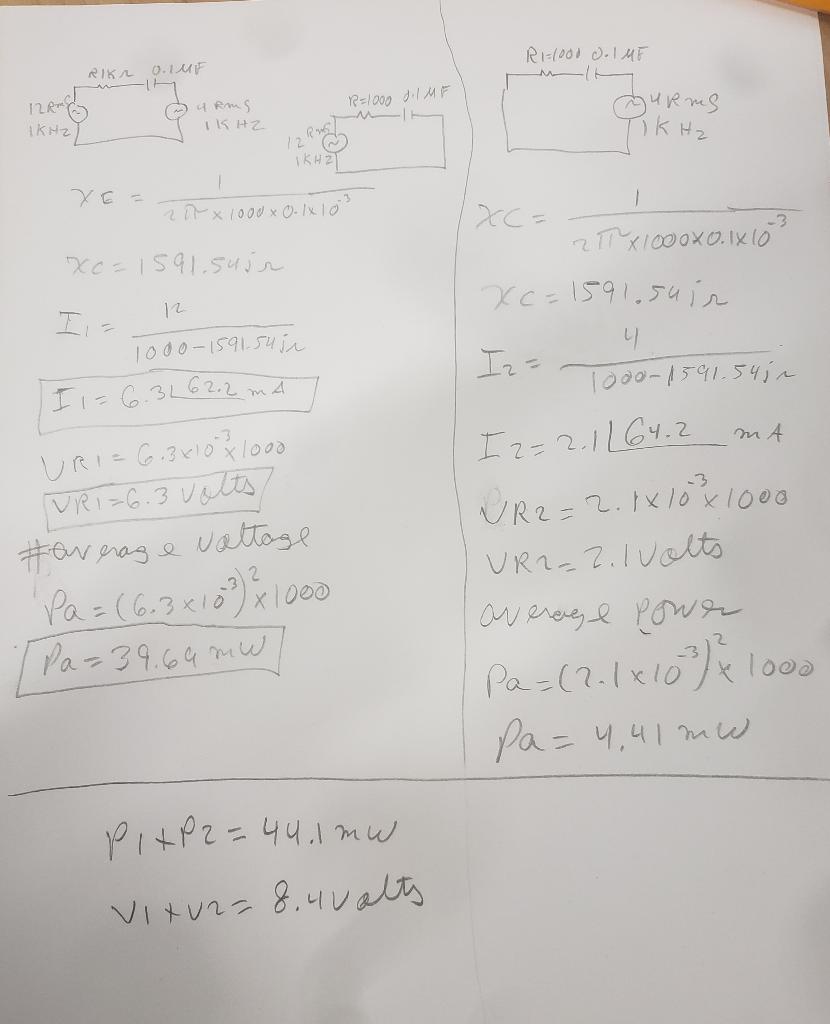 R1KΩ 0.1MF
12Rms
1KHZ
4 Rms
1KHZ
R=1000 0.1MF
12 Rms
1KHZ
XC = 1 / 2π x 1000 x 0.1x10^-3
XC = 1591.54jΩ
I1 = 12 / 1000-1591.54jΩ
I1 = 6.3∠62.2 mA
VR1 = 6.3x10^-3 x 1000
VR1=6.3 Volts
#average Voltage
Pa = (6.3x10^-3)^2 x 1000
Pa = 39.69 mW
R1=1000 0.1MF
4Rms
1K Hz
XC = 1 / 2πx1000x0.1x10^-3
XC = 1591.54jΩ
I2 = 4 / 1000-1591.54jΩ
I2 = 2.1∠64.2 mA
VR2 = 2.1x10^-3 x 1000
VR2 = 2.1Volts
average Power
Pa = (2.1x10^-3)^2 x 1000
Pa = 4.41 mW
P1+P2 = 44.1mW
V1+V2 = 8.4Volts